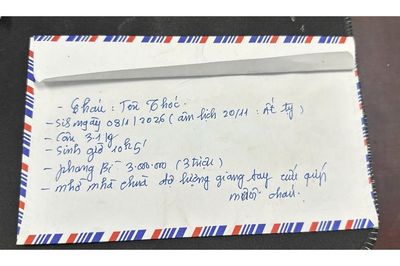 - Cháu: Tôn Thóc.
- Sis ngày 08/1/2026 (âm lịch 20/11: Ất tỵ)
- Cân 3.1g
- Sinh giờ 10h 5'
- phong Bì 3.000.000 (3 triệu)
- nhờ nhà chùa độ lượng giang tay cứu giúp
cháu.